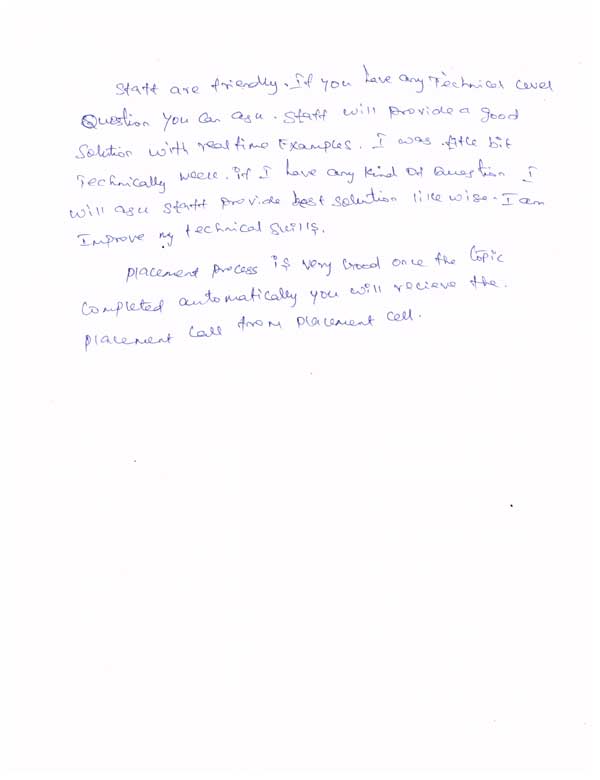 Staff are friendly. If you have any Technical Level
Question you can ask. Staff will provide a good
Solution with real time Examples. I was little bit
Technically week. if I have any kind of Question I
will ask staff provide best solution like wise. I am
Improve my technical skills.
placement process is very Good once the topic
Completed automatically you will recieve the.
placement call from placement cell.